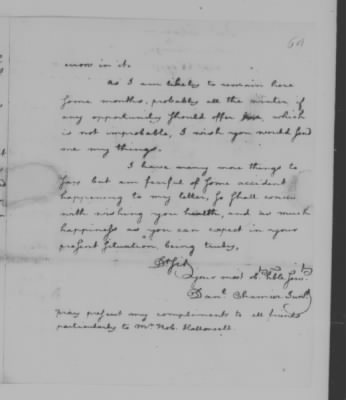 60
error in it.
As I am likely to remain here
some months, probably all the winter, if
any opportunity should offer which
is not improbable, I wish you would send
me my things.
I have many more things to
say but am fearful of some accident
happening to my letter, so shall conclude
with wishing you health, and as much
happiness as you can expect in your
present situation, being truly,
Dr Sir
Your most Ob. Hble Servt.
Danl. Chamier Junr.
pray present my compliments to all friends
particularly to Mr Rob. Hallowell.